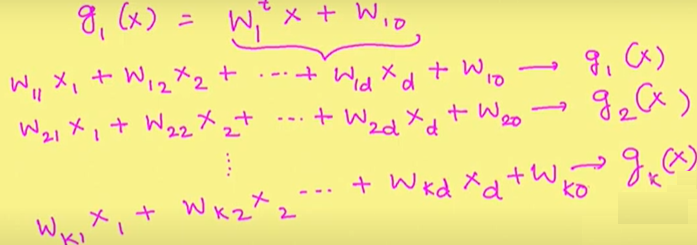 g₁(x) = W₁ᵗ x + W₁₀
W₁₁ x₁ + W₁₂ x₂ + ... + W₁d xd + W₁₀ → g₁(x)
W₂₁ x₁ + W₂₂ x₂ + ... + W₂d xd + W₂₀ → g₂(x)
⋮
WK₁ x₁ + WK₂ x₂ ... + WKd xd + WK₀ → gK(x)